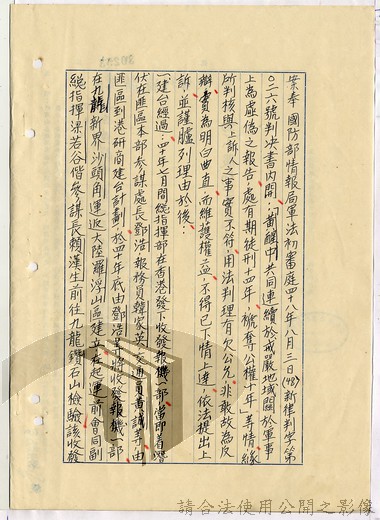 案奉 國防部情報局軍法初審庭四十八年八月三日(48)新律判字第
〇二六號判決書內開:「黃醒中共同連續於戒嚴地域關於軍事
上為虛偽之報告,處有期徒刑十四年,褫奪公權十年」等情,緣
所判核與上訴人之事實不符,用法判理有欠公允,非敢故為反
辯,實為明白曲直,而維護權益,不得已下情上達,依法提出上
訴,並謹臚列理由於後:
一、建台經過:四十年七月間總指揮部在香港發下收發報機一部,當即着潛
伏在匪區本部參謀處長鄧浩、報務員韓家英、交通員黃誠等由
匪區到港研商建台計劃,於四十年底由鄧浩等將收發報機一部
在九龍新界沙頭角運返大陸羅浮山區建立,在起運前會同副
總指揮梁若谷偕參謀長賴漢生前往九龍鑽石山檢驗該收發
請合法使用公開之影像